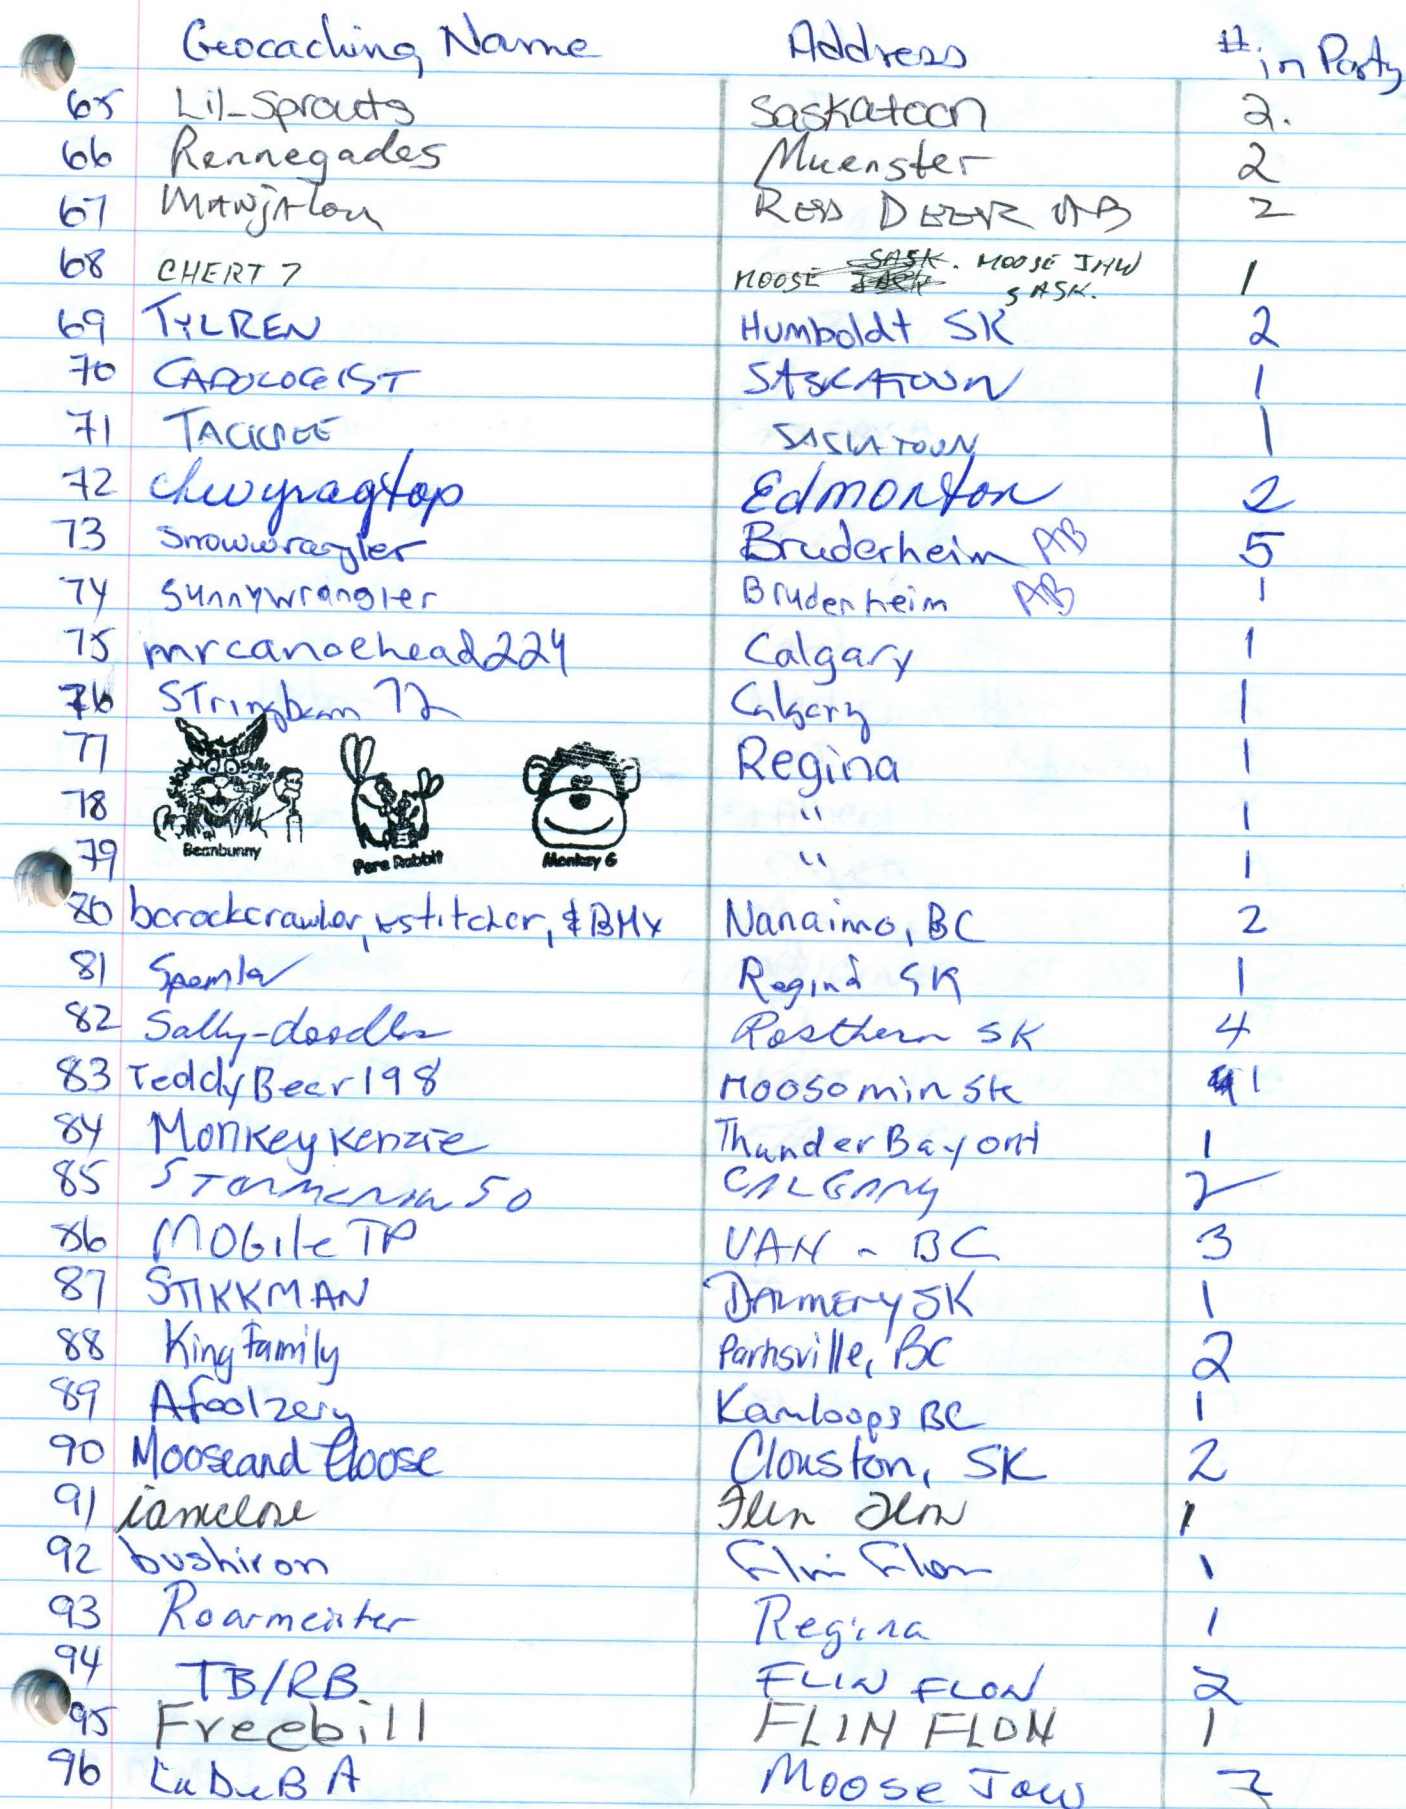 Geocaching Name Address # in Party
65 Lil_Sprouts Saskatoon 2.
66 Rennegades Muenster 2
67 RED DEER AB 2
68 CHERT 7 MOOSE SASK. MOOSE JAW SASK. 1
69 TYLREN Humboldt SK 2
70 CAPOLOGIST SASKATOON 1
71 SASKATOON 1
72 chevyragtop Edmonton 2
73 snowwrangler Bruderheim AB 5
74 sunnywrangler Bruderheim AB 1
75 mrcanoehead224 Calgary 1
76 STringbean 72 Calgary 1
77 Beanbunny Regina 1
78 Pere Rabbit " 1
79 Monkey 6 " 1
80 bcrockcrawler, xstitcher, & BMX Nanaimo, BC 2
81 Regina SK 1
82 Sally-doodles Rosthern SK 4
83 TeddyBear198 Moosomin SK 1
84 Monkey Kenzie Thunder Bay ont 1
85 50 CALGARY 2
86 MOGileTP VAN - BC 3
87 STIKKMAN DALMENY SK 1
88 King Family Parksville, BC 2
89 Afoolzery Kamloops BC 1
90 Mooseand Goose Clouston, SK 2
91 iamclose Flin Flon 1
92 bushiron Flin Flon 1
93 Roarmeister Regina 1
94 TB/RB FLIN FLON 2
95 Freebill FLIN FLON 1
96 LaDeBA Moose Jaw 2